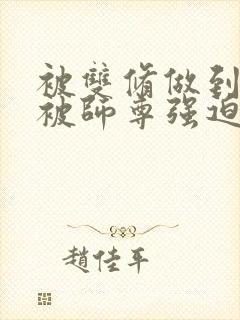 被雙脩做到
被師尊强迫
趙佳平